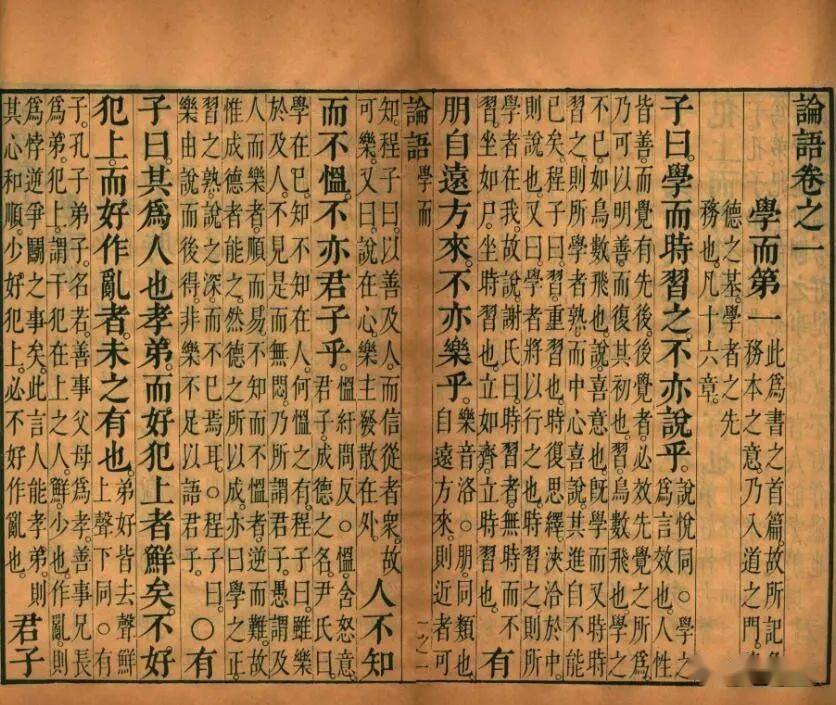 論語卷之一
學而第一
此爲書之首篇。故所記
務本之意。乃入道之門。
德之基。學者之先
務也。凡十六章。
子曰。學而時習之。不亦說乎。
說悅同。○學之
爲言效也。人性
皆善。而覺有先後。後覺者。必效先覺之所爲。
乃可以明善而復其初也。習。鳥數飛也。學之
不已。如鳥數飛也。說。喜意也。既學而又時時
習之。則所學者熟。而中心喜說。其進自不能
已矣。程子曰。習。重習也。時復思繹。浹洽於中。
則說也。又曰。學者將以行之也。時習之。則所
學者在我。故說。謝氏曰。時習者。無時而不
習。坐如尸。坐時習也。立如齊。立時習也。
有
朋自遠方來。不亦樂乎。
樂音洛。○朋。同類也。
自遠方來。則近者可
論語 學而
知。程子曰。以善及人。而信從者衆。故
可樂。又曰。說在心。樂主發散在外。
人不知
而不慍。不亦君子乎。
慍紆問反。○慍。含怒意。
君子。成德之名。尹氏曰。
學在己。知不知在人。何慍之有。程子曰。雖樂
於及人。不見是而無悶。乃所謂君子。愚謂及
人而樂者。順而易。不知而不慍者。逆而難。故
惟成德者能之。然德之所以成。亦曰學之正。
習之熟。說之深。而不已焉耳。○程子曰。
樂由說而後得。非樂不足以語君子。
○有
子曰。其爲人也孝弟。而好犯上者鮮矣。不好
犯上。而好作亂者。未之有也。
弟好皆去聲。鮮
上聲。下同。○有
子。孔子弟子。名若。善事父母爲孝。善事兄長
爲弟。犯上。謂干犯在上之人。鮮。少也。作亂。則
爲悖逆爭鬭之事矣。此言人能孝弟。則
其心和順。少好犯上。必不好作亂也。
君子